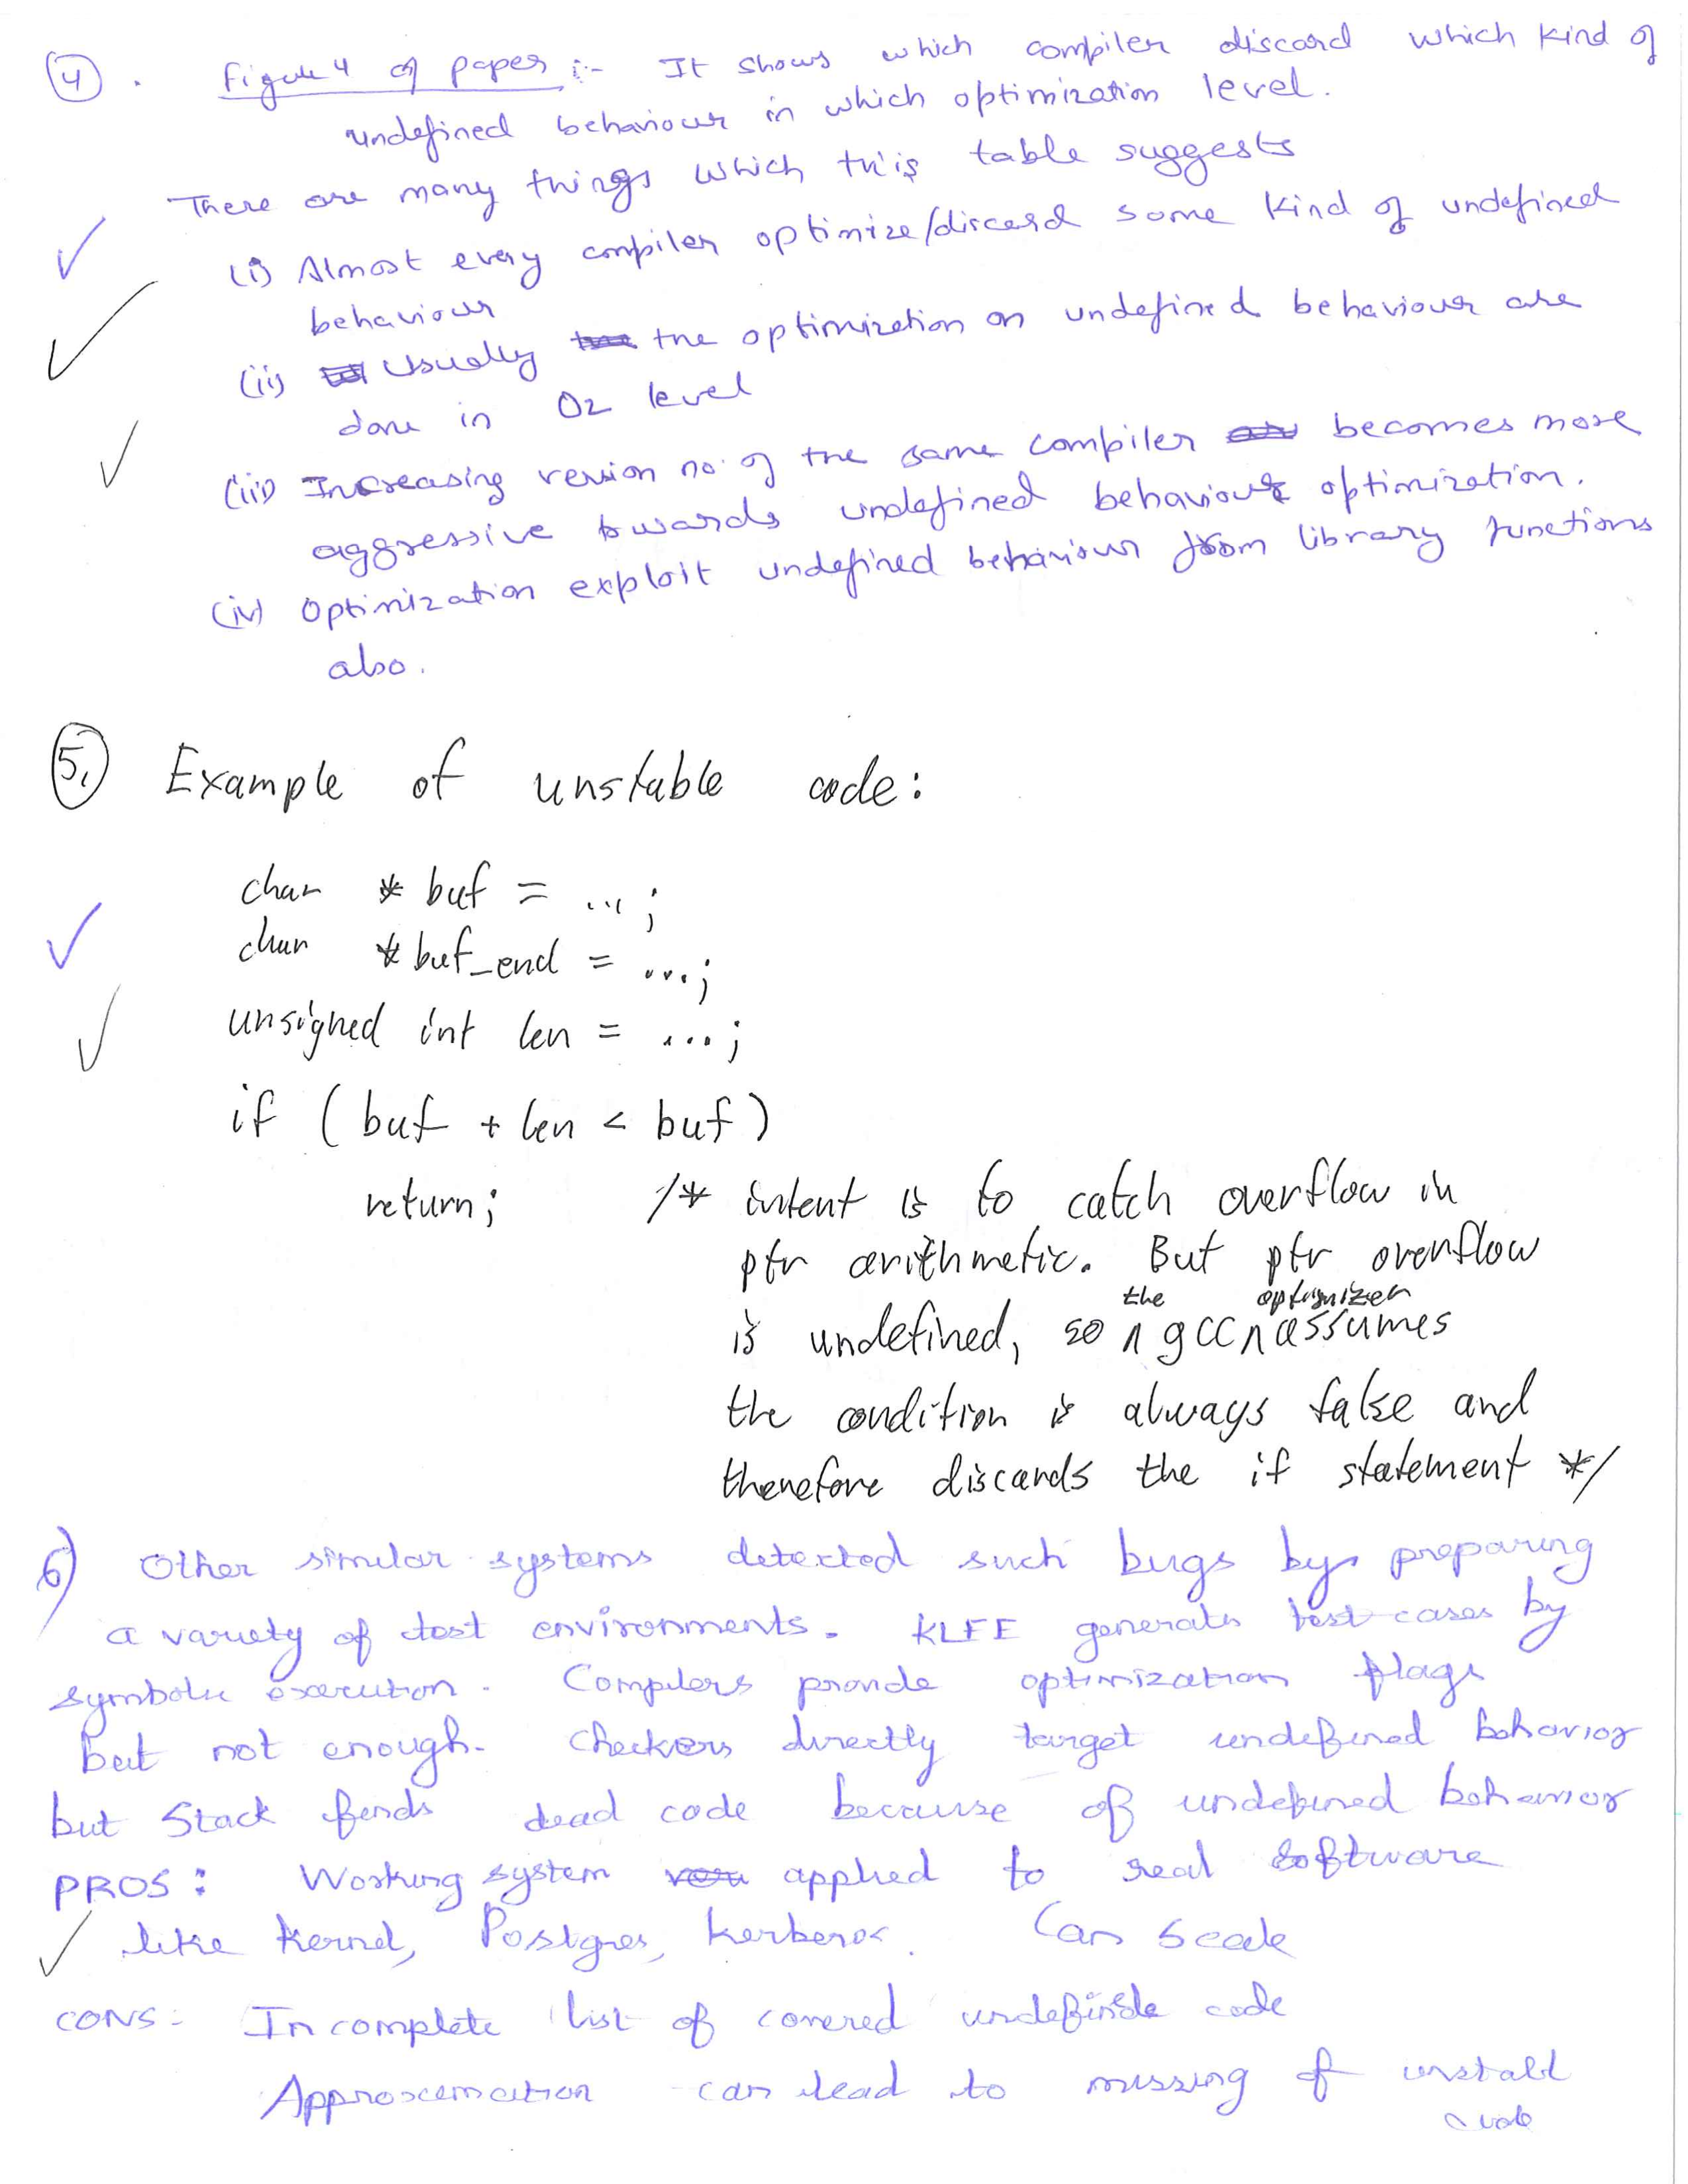 (4). Figure 4 of paper :- It shows which compiler discard which kind of
undefined behaviour in which optimization level.
There are many things which this table suggests
(i) Almost every compiler optimize/discard some kind of undefined
behaviour
(ii) Usually the optimization on undefined behaviour are
done in O2 level
(iii) Increasing version no. of the same compiler becomes more
aggressive towards undefined behaviour optimization.
(iv) Optimization exploit undefined behaviour from library functions
also.
(5.) Example of unstable code:
char * buf = ...;
char * buf_end = ...;
unsigned int len = ...;
if (buf + len < buf)
return; /* intent is to catch overflow in
ptr arithmetic. But ptr overflow
is undefined, so the gcc optimizer assumes
the condition is always false and
therefore discards the if statement */
6) Other similar systems detected such bugs by preparing
a variety of test environments. KLEE generates test cases by
symbolic execution. Compilers provide optimization flags
but not enough. Checkers directly target undefined behavior
but Stack finds dead code because of undefined behavior
PROS: Working system applied to real software
like Kernel, Postgres, Kerberos. Can scale
CONS: Incomplete list of covered code
Approximation can lead to missing of